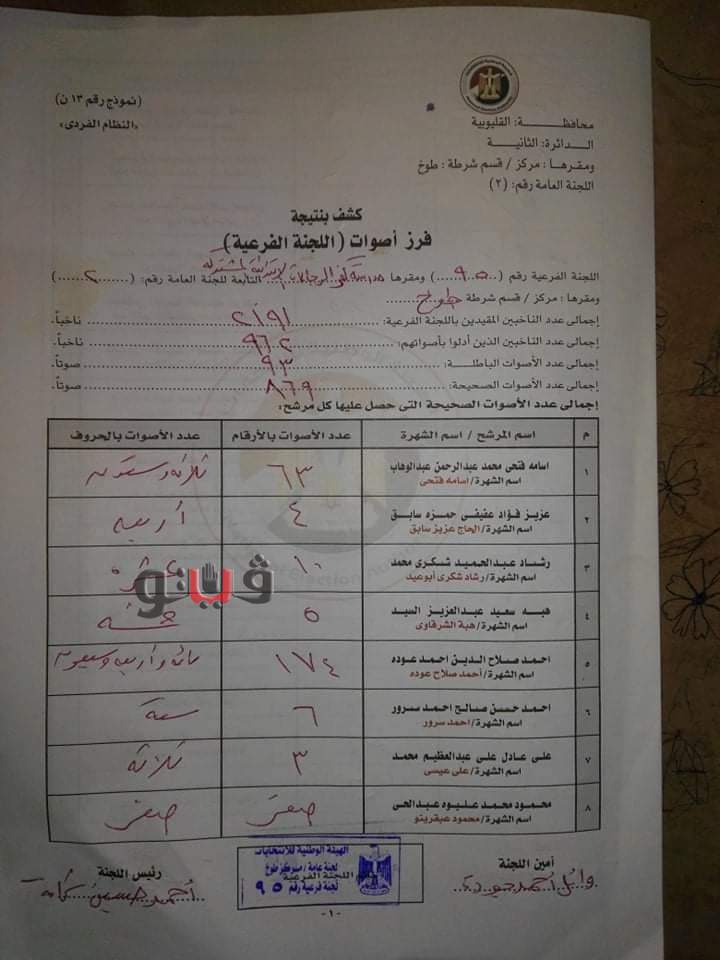 (نموذج رقم ١٣ ن)
«النظام الفردى»
محافظة: القليوبية
الدائرة: الثانية
ومقرها: مركز / قسم شرطة: طوخ
اللجنة العامة رقم: (٢)
كشف بنتيجة
فرز أصوات (اللجنة الفرعية)
اللجنة الفرعية رقم (٩٥) ومقرها مدرسة كفر الرجالات الابتدائية المشتركة التابعة للجنة العامة رقم: (٢)
ومقرها: مركز / قسم شرطة طوخ
إجمالى عدد الناخبين المقيدين باللجنة الفرعية: ٢١٩١ ناخباً.
إجمالى عدد الناخبين الذين أدلوا بأصواتهم: ٩٦٢ ناخباً.
إجمالى عدد الأصوات الباطلة: ٩٣ صوتاً.
إجمالى عدد الأصوات الصحيحة: ٨٦٩ صوتاً.
إجمالى عدد الأصوات الصحيحة التى حصل عليها كل مرشح:
م اسم المرشح / اسم الشهرة عدد الأصوات بالأرقام عدد الأصوات بالحروف
١ اسامه فتحى محمد عبدالرحمن عبدالوهاب ٦٣ ثلاثة وستون
اسم الشهرة/اسامه فتحى
٢ عزيز فؤاد عفيفى حمزه سابق ٤ أربعه
اسم الشهرة/الحاج عزيز سابق
٣ رشاد عبدالحميد شكرى محمد ١٠ عشره
اسم الشهرة/رشاد شكرى أبوعيد
ڤيتو
٤ هبه سعيد عبدالعزيز السيد ٥ خمسه
اسم الشهرة/هبة الشرقاوى
٥ احمد صلاح الدين احمد عوده ١٧٤ مائه واربعه وسبعون
اسم الشهرة/أحمد صلاح عوده
٦ احمد حسن صالح احمد سرور ٦ ستة
اسم الشهرة/احمد سرور
٧ على عادل على عبدالعظيم محمد ٣ ثلاثة
اسم الشهرة/على عيسى
٨ محمود محمد عليوه عبدالحى صفر صفر
اسم الشهرة/محمود عبقرينو
أمين اللجنة
رئيس اللجنة
الهيئة الوطنية للانتخابات
لجنة عامة / مركز طوخ
لجنة فرعية رقم ٩٥
أحمد حسين
-١-